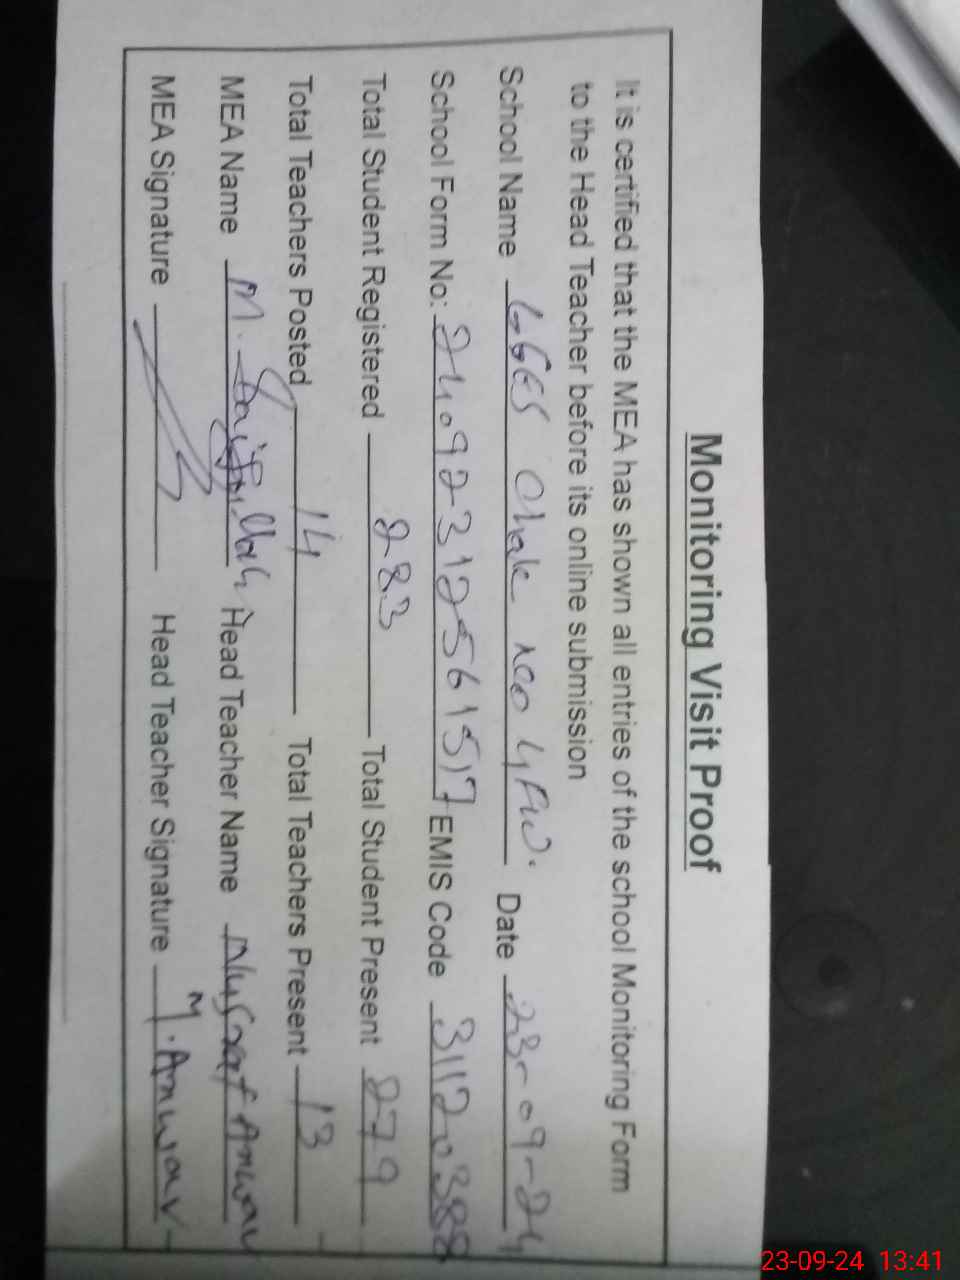 Monitoring Visit Proof
It is certified that the MEA has shown all entries of the school Monitoring Form
to the Head Teacher before its online submission
School Name GGES Chak 100 4/FW. Date 23-09-24
School Form No: 24092312561517 EMIS Code 31120388
Total Student Registered 283 Total Student Present 279
Total Teachers Posted 14 Total Teachers Present 13
MEA Name M. Saifullah Head Teacher Name Nusrat Anwar
MEA Signature Head Teacher Signature M. Anwar
23-09-24 13:41